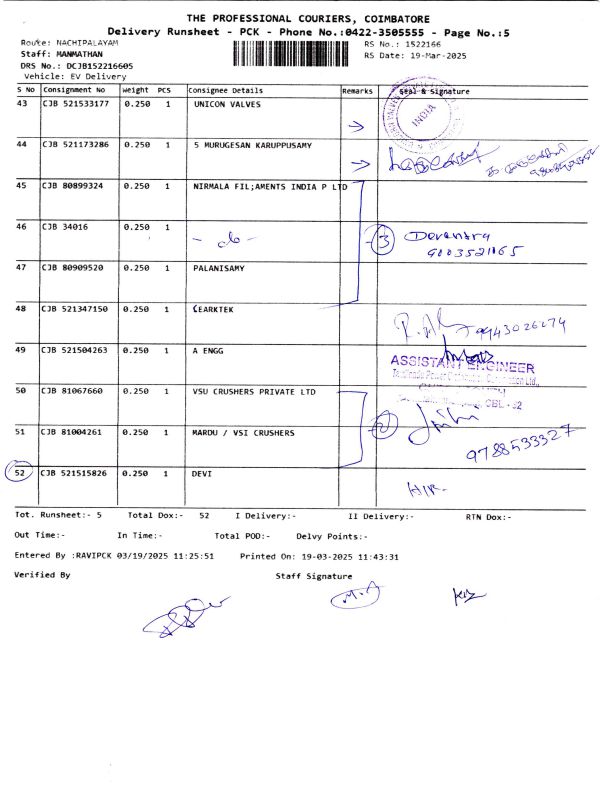 THE PROFESSIONAL COURIERS, COIMBATORE
Delivery Runsheet - PCK - Phone No.:0422-3505555 - Page No.:5
Route: NACHIPALAYAM
RS No.: 1522166
Staff: MANMATHAN
RS Date: 19-Mar-2025
DRS No.: DCJB152216605
Vehicle: EV Delivery
S No Consignment No Weight PCS Consignee Details Remarks Seal & Signature
43 CJB 521533177 0.250 1 UNICON VALVES
INDIA
44 CJB 521173286 0.250 1 S MURUGESAN KARUPPUSAMY
45 CJB 80899324 0.250 1 NIRMALA FIL;AMENTS INDIA P LTD
46 CJB 34016 0.250 1 - do - 3 Devendra
9003521165
47 CJB 80909520 0.250 1 PALANISAMY
48 CJB 521347150 0.250 1 CEARKTEK
9943026274
49 CJB 521504263 0.250 1 A ENGG
ASSISTANT ENGINEER
50 CJB 81067660 0.250 1 VSU CRUSHERS PRIVATE LTD
2
51 CJB 81004261 0.250 1 MARDU / VSI CRUSHERS
9788533327
52 CJB 521515826 0.250 1 DEVI
H/R.
Tot. Runsheet:- 5 Total Dox:- 52 I Delivery:- II Delivery:- RTN Dox:-
Out Time:- In Time:- Total POD:- Delvy Points:-
Entered By :RAVIPCK 03/19/2025 11:25:51 Printed On: 19-03-2025 11:43:31
Verified By Staff Signature
M.A